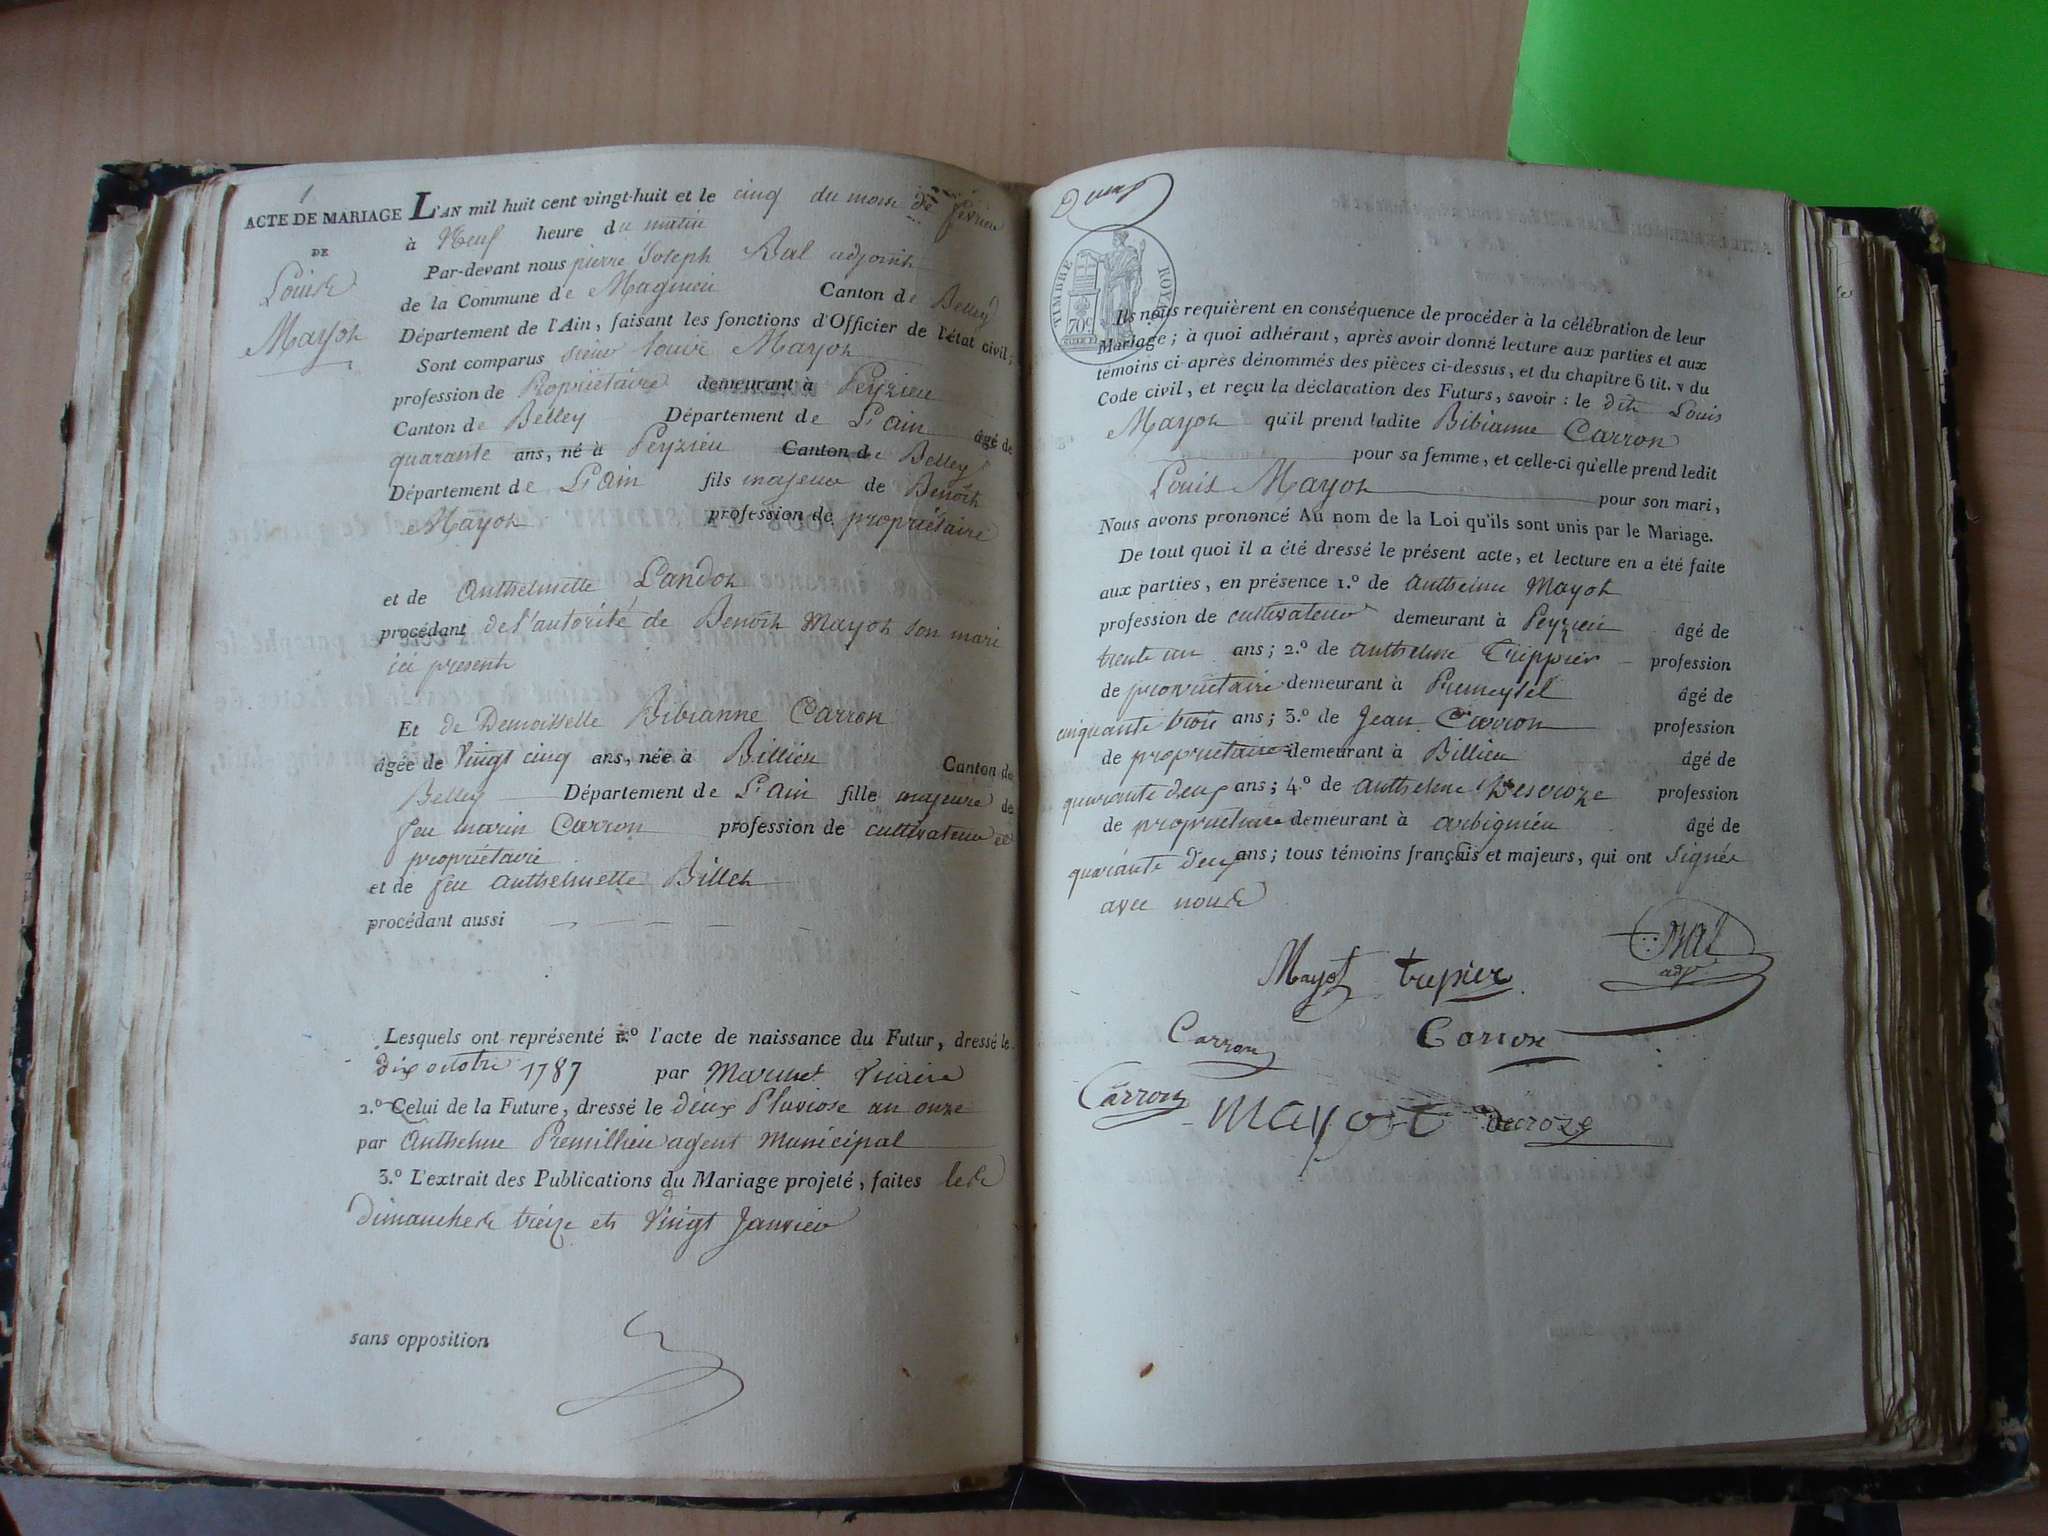 1
ACTE DE MARIAGE L'AN mil huit cent vingt-huit et le cinq du mois de février
à Neuf heure du matin
DE
Louis
Mayot
Par-devant nous pierre Joseph Bal adjoint
de la Commune de Magnieu Canton de Belley
Département de l'Ain, faisant les fonctions d'Officier de l'état civil;
Sont comparus sieur louis Mayot
profession de Propriétaire demeurant à Peyzieu
Canton de Belley Département de L'ain âgé de
quarante ans, né à Peyzieu Canton de Belley
Département de L'ain fils majeur de Benoit
Mayot profession de propriétaire
et de Anthelmette Landot
procédant de l'autorité de Benoit Mayot son mari
ici present
Et de Demoiselle Bibianne Carron
âgée de Vingt cinq ans, née à Billieu Canton de
Belley Département de L'ain fille majeure de
feu marin Carron profession de cultivateur et
propriétaire
et de feu Anthelmette Billet
procédant aussi
Lesquels ont représenté 1.º l'acte de naissance du Futur, dressé le
dix octobre 1787 par Vicaire
2.º Celui de la Future, dressé le deux Pluviose an onze
par Anthelme Premillieu agent Municipal
3.º L'extrait des Publications du Mariage projeté, faites les
dimanches treize et Vingt Janvier
sans opposition
Deux
TIMBRE ROYAL
70c
Ils nous requièrent en conséquence de procéder à la célébration de leur
Mariage; à quoi adhérant, après avoir donné lecture aux parties et aux
témoins ci-après dénommés des pièces ci-dessus, et du chapitre 6 tit. v du
Code civil, et reçu la déclaration des Futurs, savoir: le dit Louis
Mayot qu'il prend ladite Bibianne Carron
pour sa femme, et celle-ci qu'elle prend ledit
Louis Mayot pour son mari,
Nous avons prononcé Au nom de la Loi qu'ils sont unis par le Mariage.
De tout quoi il a été dressé le présent acte, et lecture en a été faite
aux parties, en présence 1.º de Anthelme Mayot
profession de cultivateur demeurant à Peyzieu âgé de
trente un ans; 2.º de Anthelme Trippier profession
de propriétaire demeurant à Premeysel âgé de
cinquante trois ans; 3.º de Jean Carron profession
de propriétaire demeurant à Billieu âgé de
quarante deux ans; 4.º de Anthelme Descroze profession
de propriétaire demeurant à arbignieu âgé de
quarante deux ans; tous témoins français et majeurs, qui ont signés
avec nous
Mayot trepier Bal
adj.
Carron Carron
Carron Mayot decroze